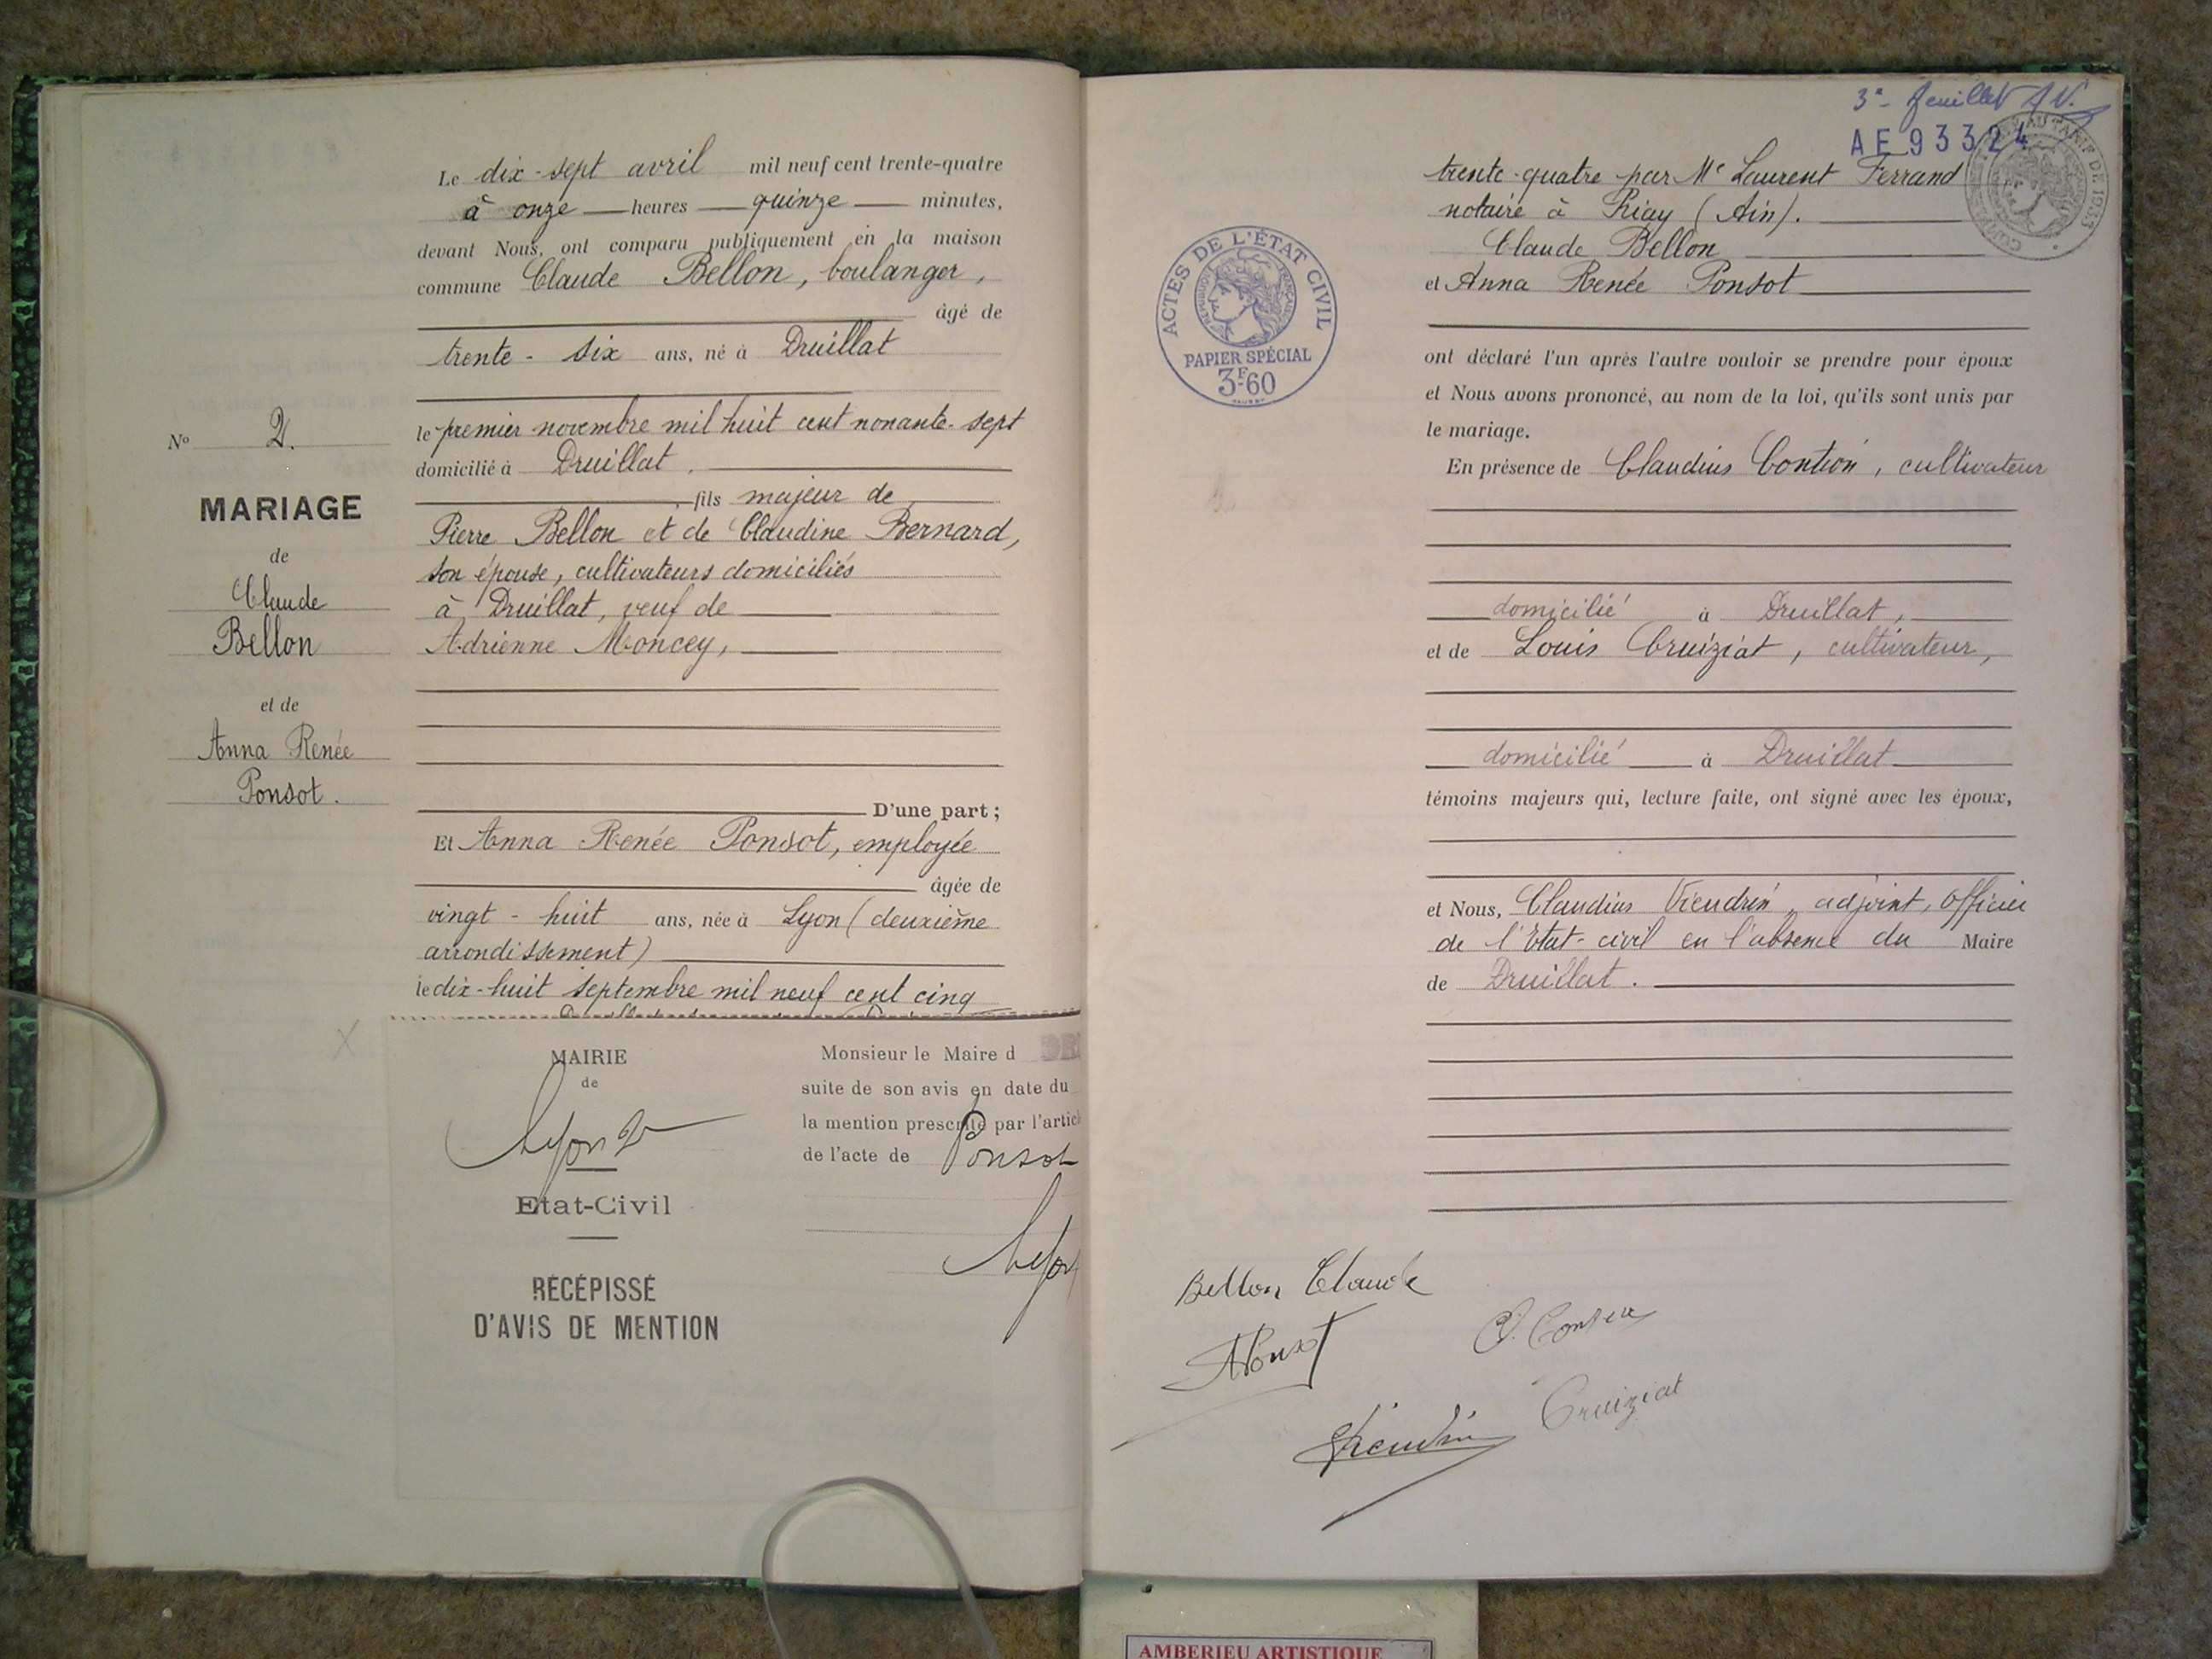 N° 2.
MARIAGE
de
Claude
Bellon
et de
Anna Renée
Ponsot.
Le dix-sept avril mil neuf cent trente-quatre
à onze heures quinze minutes,
devant Nous, ont comparu publiquement en la maison
commune Claude Bellon, boulanger,
âgé de
trente-six ans, né à Druillat
le premier novembre mil huit cent nonante-sept
domicilié à Druillat.
fils majeur de
Pierre Bellon et de Claudine Bernard,
son épouse, cultivateurs domiciliés
à Druillat, veuf de
Adrienne Moncey,
D'une part;
Et Anna Renée Ponsot, employée
âgée de
vingt-huit ans, née à Lyon (deuxième
arrondissement)
le dix-huit septembre mil neuf cent cinq
MAIRIE
de
Lyon 2
Etat-Civil
RÉCÉPISSÉ
D'AVIS DE MENTION
Monsieur le Maire d
suite de son avis en date du
la mention prescrite par l'artic
de l'acte de Ponsot
Lyon
3e feuillet
AE 93324
ACTES DE L'ÉTAT CIVIL
RÉPUBLIQUE FRANÇAISE
PAPIER SPÉCIAL
3F60
trente-quatre par Me Laurent Ferrand
notaire à Priay (Ain).
Claude Bellon
et Anna Renée Ponsot
ont déclaré l'un après l'autre vouloir se prendre pour époux
et Nous avons prononcé, au nom de la loi, qu'ils sont unis par
le mariage.
En présence de Claudius Contion, cultivateur
domicilié à Druillat,
et de Louis Cruiziat, cultivateur,
domicilié à Druillat
témoins majeurs qui, lecture faite, ont signé avec les époux,
et Nous, Claudius Viendrin, adjoint, officier
de l'Etat-civil en l'absence du Maire
de Druillat.
Bellon Claude
APonsot
Cruiziat
Viendrin
AMBERIEU ARTISTIQUE